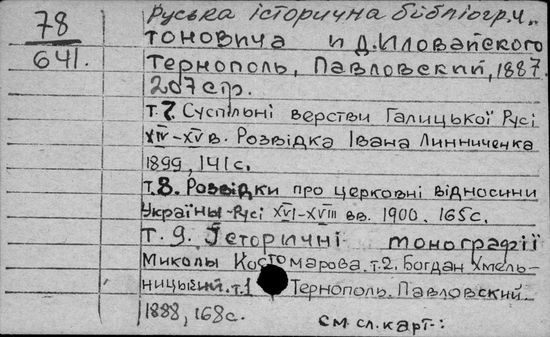 78
641.
Руська історична бібліогр. Ч.
тоновича и Д. Иловайского
Тернополь, Павловский, 1887.
207 стр.
т. 7. Суспільні верстви Галицької Русі
XIV-XV в. Розвідка Івана Линниченка
1899, 141 с.
т. 8. Розвідки про церковні відносини
Украіны-Русі XVI-XVIII вв. 1900. 165 с.
т. 9. Історичні монографії
Миколы Костомарова. т. 2. Богдан Хмель-
ницький. т. 1 Тернополь. Павловский.
1888, 168 с.
см. сл. карт-: